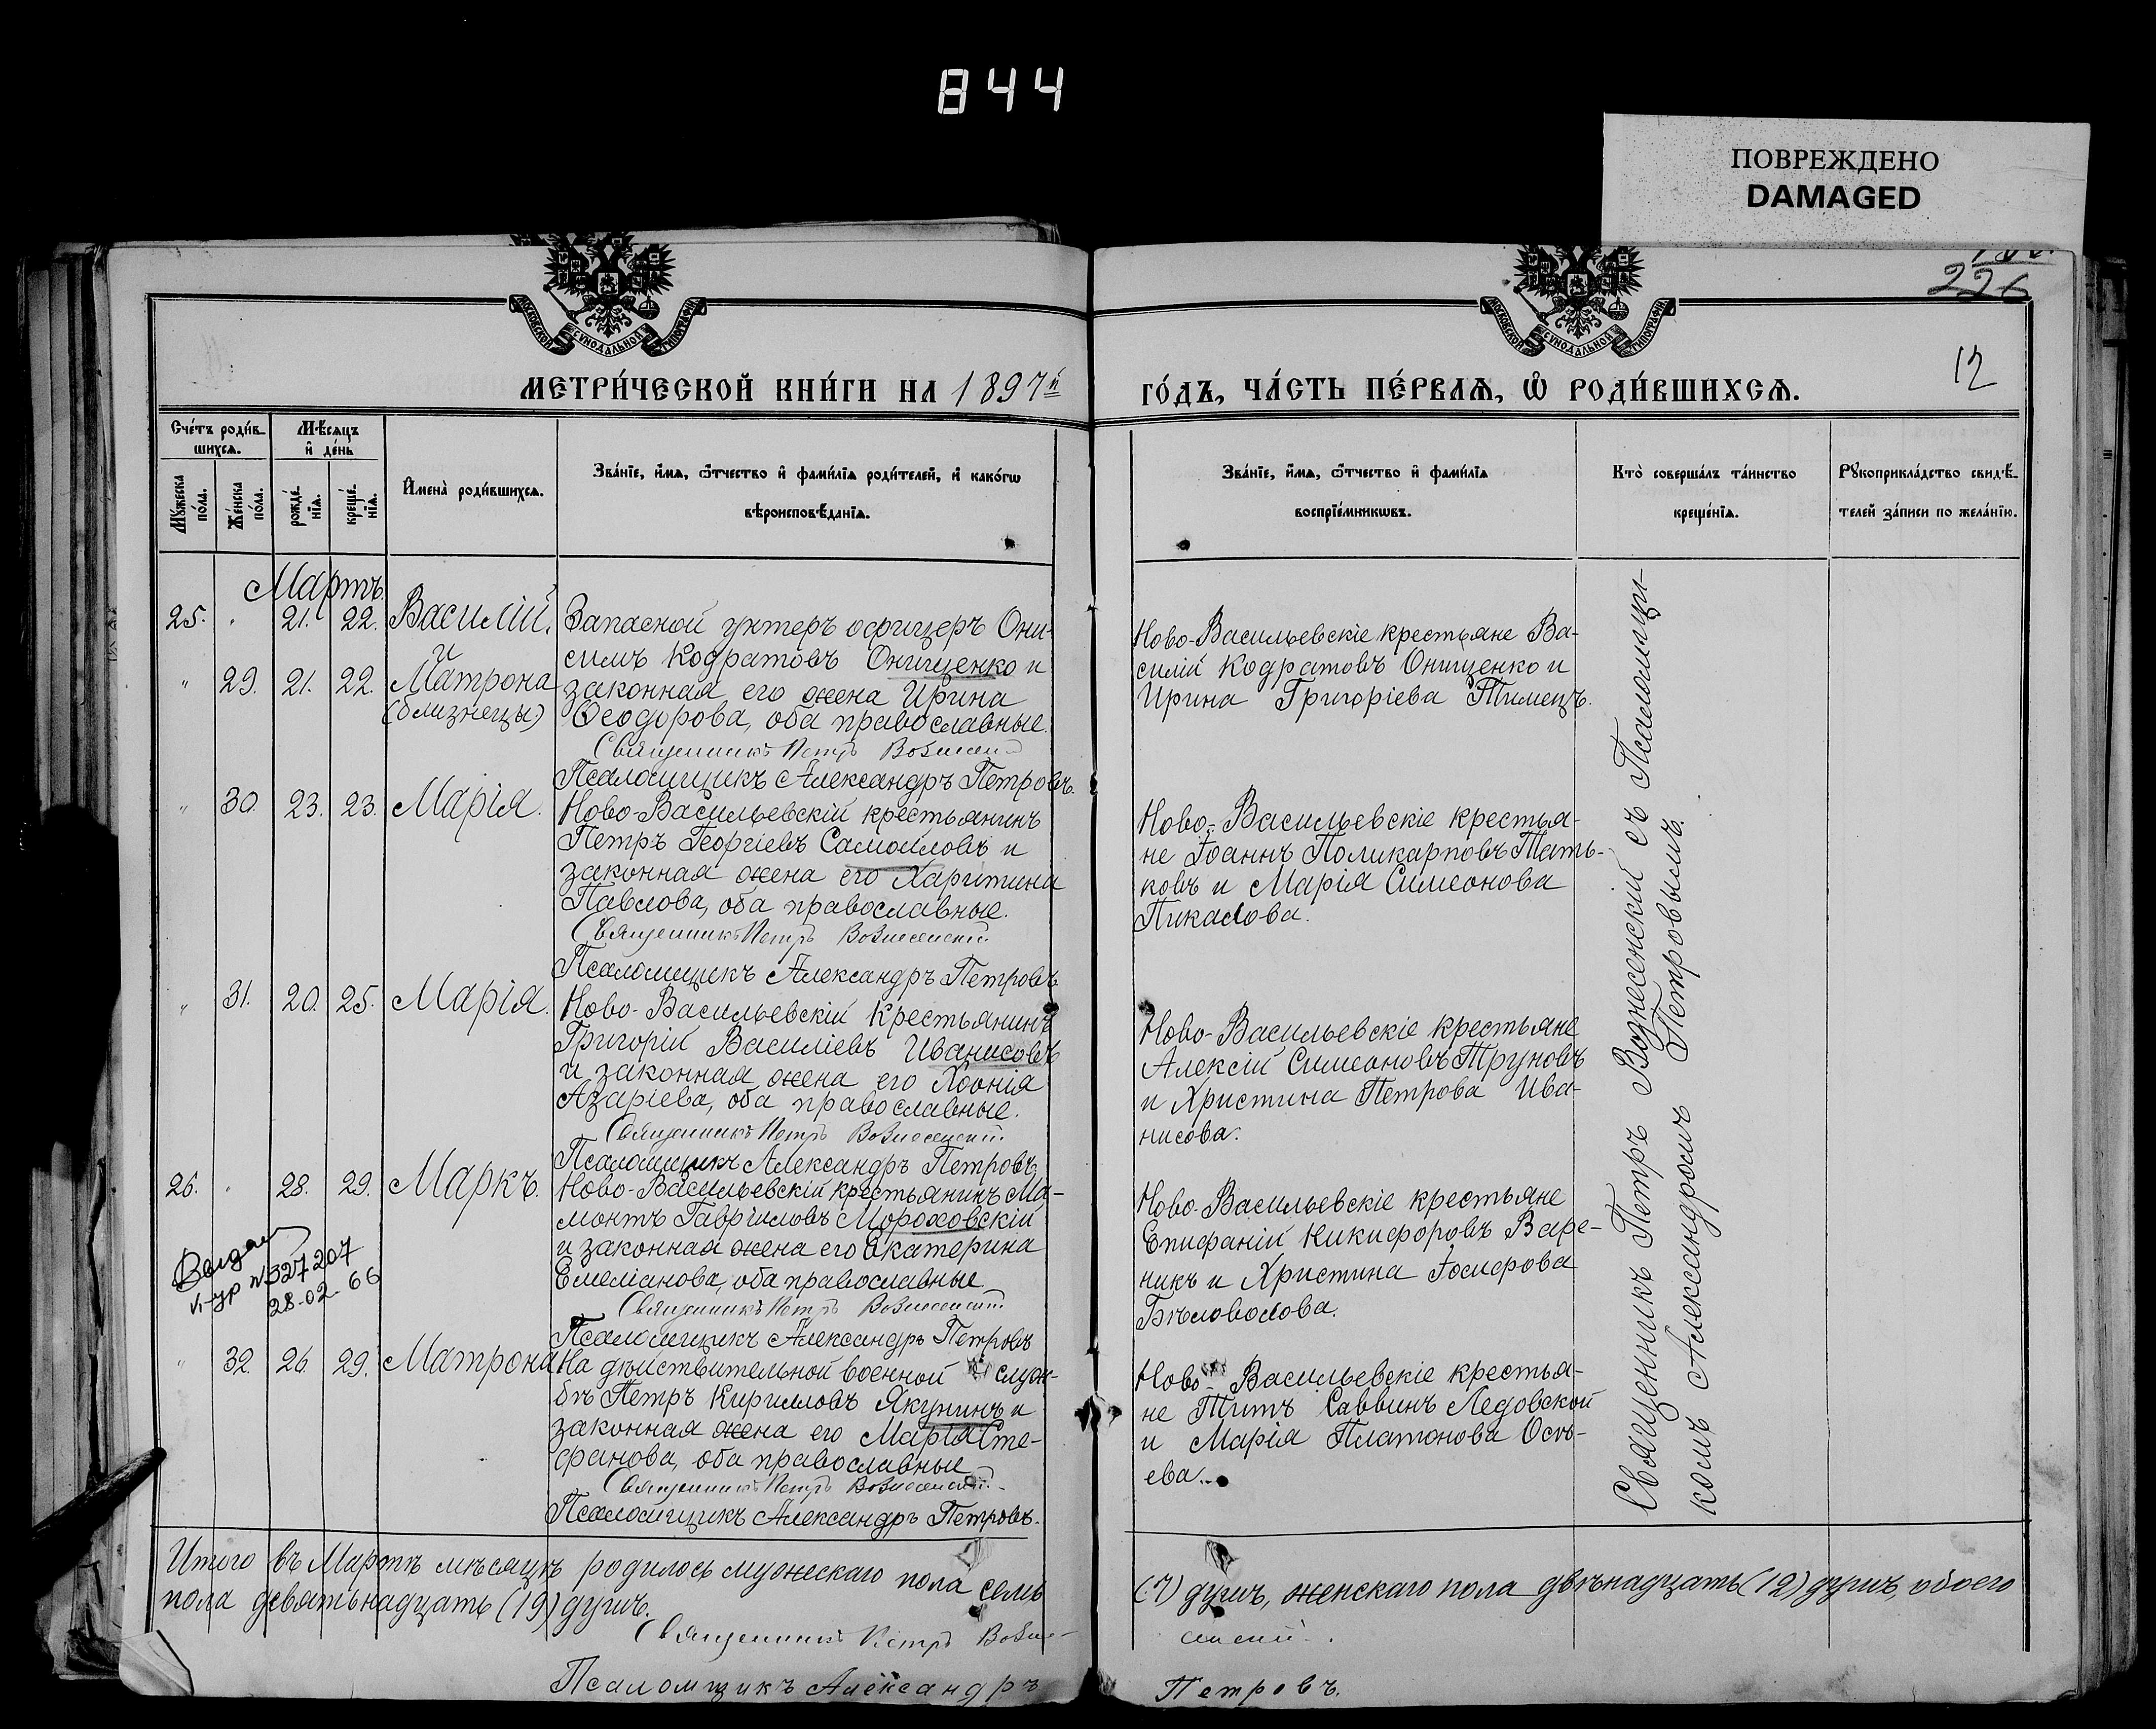 844
ПОВРЕЖДЕНО
DAMAGED
226
12
МОСКОВСКОЙ СѴНОДАЛЬНОЙ ТИПОГРАФІИ
МОСКОВСКОЙ СѴНОДАЛЬНОЙ ТИПОГРАФІИ
МЕТРИ́ЧЕСКОЙ КНИ́ГИ НА 1897й
ГО́ДЪ, ЧА́СТЬ ПЕ́РВАѦ, Ѡ҆ РОДИ́ВШИХСѦ.
Сче́тъ роди́в-
шихсѧ.
Мѣ́сѧцъ
и҆ де́нь
Мꙋ́жеска
по́ла.
Же́нска
по́ла.
рожде́-
нїѧ.
креще́-
нїѧ.
И҆мена̀ роди́вшихсѧ.
Зва́нїе, и҆́мѧ, ѻ҆́тчество и҆ фами́лїѧ роди́телей, и҆ како́гѡ
вѣроисповѣ́данїѧ.
Зва́нїе, и҆́мѧ, ѻ҆́тчество и҆ фами́лїѧ
воспрїе́мникѡвъ.
Кто̀ соверша́лъ та́инство
креще́нїѧ.
Рꙋкоприкла́дство свидѣ́-
телей за́писи по жела́нїю.
Мартъ.
25. " 21. 22. Василій.
и
" 29. 21. 22. Матрона
(близнецы)
Запасной унтеръ офицеръ Они-
симъ Кодратовъ Онищенко и
законная его жена Ирина
Ѳеодорова, оба православные.
Священникъ Петръ Вознесен
Псаломщикъ Александръ Петровъ.
Ново-Васильевскіе крестьяне Ва-
силій Кодратовъ Онищенко и
Ирина Григоріева Тимецъ.
" 30. 23. 23. Марія.
Ново-Васильевскій крестьянинъ
Петръ Георгіевъ Самойловъ и
законная жена его Харитина
Павлова, оба православные.
Священникъ Петръ Вознесенскій
Псаломщикъ Александръ Петровъ
Ново-Васильевскіе крестья-
не Іоаннъ Поликарповъ Тать-
ковъ и Марія Симеонова
Пикалова.
" 31. 20. 25. Марія.
Ново-Васильевскій крестьянинъ
Григорій Василіевъ Иванисовъ
и законная жена его Хіонія
Азаріева, оба православные.
Священникъ Петръ Вознесенскій
Псаломщикъ Александръ Петровъ
Ново-Васильевскіе крестьяне
Алексій Симеоновъ Труновъ
и Христина Петрова Ива-
нисова.
26. " 28. 29. Маркъ.
Ново-Васильевскій крестьянинъ Ма-
монтъ Гавріиловъ Мороховскій
и законная жена его Екатерина
Емеліанова, оба православные
Священникъ Петръ Вознесенскій
Псаломщикъ Александръ Петровъ
Ново-Васильевскіе крестьяне
Епифаній Никифоровъ Варе-
никъ и Христина Іосифова
Бѣловолова.
№ 327207
28-02-66
" 32. 26 29. Матрона
На дѣйствительной военной служ-
бѣ Петръ Кирилловъ Якунинъ и
законная жена его Марія Сте-
фанова, оба православные
Священникъ Петръ Вознесенскій
Псаломщикъ Александръ Петровъ.
Ново-Васильевскіе крестья-
не Титъ Саввинъ Ледовской
и Марія Платонова Осѣ-
ева.
Священникъ Петръ Вознесенскій съ Псаломщи-
комъ Александромъ Петровымъ.
Итого въ Мартѣ мѣсяцѣ родилось мужескаго пола семь (7) душъ, женскаго пола двѣнадцать (12) душъ, обоего
пола девятьнадцать (19) душъ.
Священникъ Петръ Возне-
сенскій.
Псаломщикъ Александръ Петровъ.